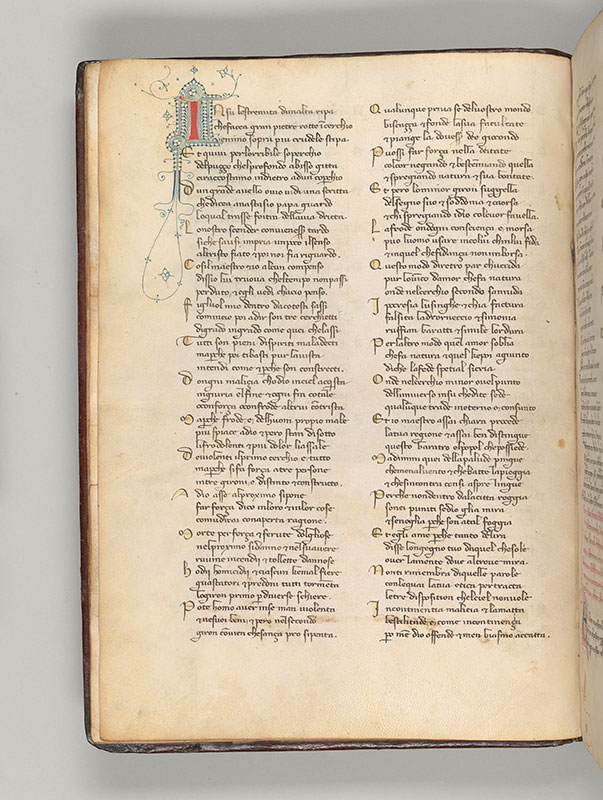 In su lestremita dunalta ripa
che facea gran pietre rotte i cerchio
venimo sopra piu crudele stipa
Et quiui per lorribile soperchio
del puzzo chel profondo abisso gitta
ci racostamo indietro ad un coperchio
Dun grande auello ouio uidi una scritta
che dicea anastasio papa guardo
lo qual trasse fotin della uia dritta
Lo nostro scender conuien esser tardo
si che sausi impria un poco il senso
al tristo fiato et poi nor fia riguardo
Cosil maestro et io alcun compenso
dissio lui truoua chel tempo non passi
perduto et egli uedi cha cio penso
Figliuol mio dentro da cotesti sassi
comincio poi a dir son tre cerchietti
di grado in grado come quei che lassi
Tutti son pieni di spiriti maladetti
ma perche poi ti basti pur la uista
intendi come et perche son constretti
Dogni malizia chodio in ciel acquista
ingiuria el fine et ogni fin cotale
o con forza o con frode altrui contrista
Ma perche frode e dell huom propio male
piu spiace a dio et pero stan di sotto
li frodolenti et piu dolor lassale
De uiolenti il primo cerchio e tutto
ma perche si fa forza a tre persone
in tre gironi e distinto et constructo
A dio a se al proximo si pone
far forza dico in loro et in lor cose
come udirai con aperta ragione
Morte per forza et ferute dogliose
nel proximo si danno et nel suo auere
ruuine incendii et tollette dannose
Onde homicidi et ciascun che mal fiere
guastatori et predon tutti tormenta
lo giron primo per diuerse schiere
Pote homo auer in se man uiolenta
et ne suoi beni et pero nel secondo
giron conuien che sanza pro si penta
Qualunque priua se del uostro mondo
biscazza et fonde la sua facultate
et piange la doue esser de giocondo
Puossi far forza nella deitate
col cor negando et bestemiando quella
et spregiando natura et sua bontate
Et pero lo minor giron suggella
del segno suo et soddoma et caorsa
et chi spregiando idio col cuor fauella
La frode ondogni conscienza e morsa
puo luomo usare in colui chin lui fida
et in quel che fidanza non imborsa
Questo modo di retro par chuccida
pur louinco damor che fa natura
onde nel cerchio secondo sannida
Ipocresia lusinghe et chi factura
falsita ladroneccio et simonia
ruffian baratti et simile lordura
Per laltro modo quel amor soblia
che fa natura et quel che poi agiunto
di che la fede spetial si cria
Onde nel cerchio minor oue l punto
dell uniuerso in su che dite sede
qualunque trade in eterno e consunto
Et io maestro assai chiara procede
la tua ragione et assai ben distingue
questo baratro el popol chel possiede
Ma dimmi quei della palude pingue
che mena il uento et che batte la pioggia
et che sincontran con si aspre lingue
Perche non dentro dalla citta roggia
sonei puniti se dio gli a in ira
et se non gli a perche son a tal foggia
Et egli a me perche tanto delira
disse longegno tuo da quel che sole
ouer la mente doue altroue mira
Non ti rimembra di quelle parole
con le quai la tua etica pertracta
le tre dispositton chel ciel non uole
Incontinentia malitia et la matta
bestilitade e come incontinenza
per men dio offende et men biasmo accatta